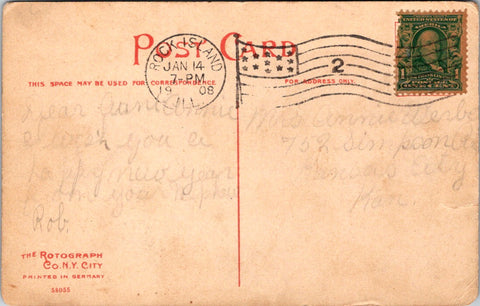 POST CARD
ROCK ISLAND
JAN 14
7-PM
1908
ILL.
2
UNITED STATES OF
1
THIS SPACE MAY BE USED FOR CORRESPONDENCE.
FOR ADDRESS ONLY.
Dear Aunt Annie
I wish you a
Happy new year
you
Rob.
Mrs Annie
752 Simpson
Kansas City
Kan.
THE ROTOGRAPH
CO. N.Y. CITY
PRINTED IN GERMANY